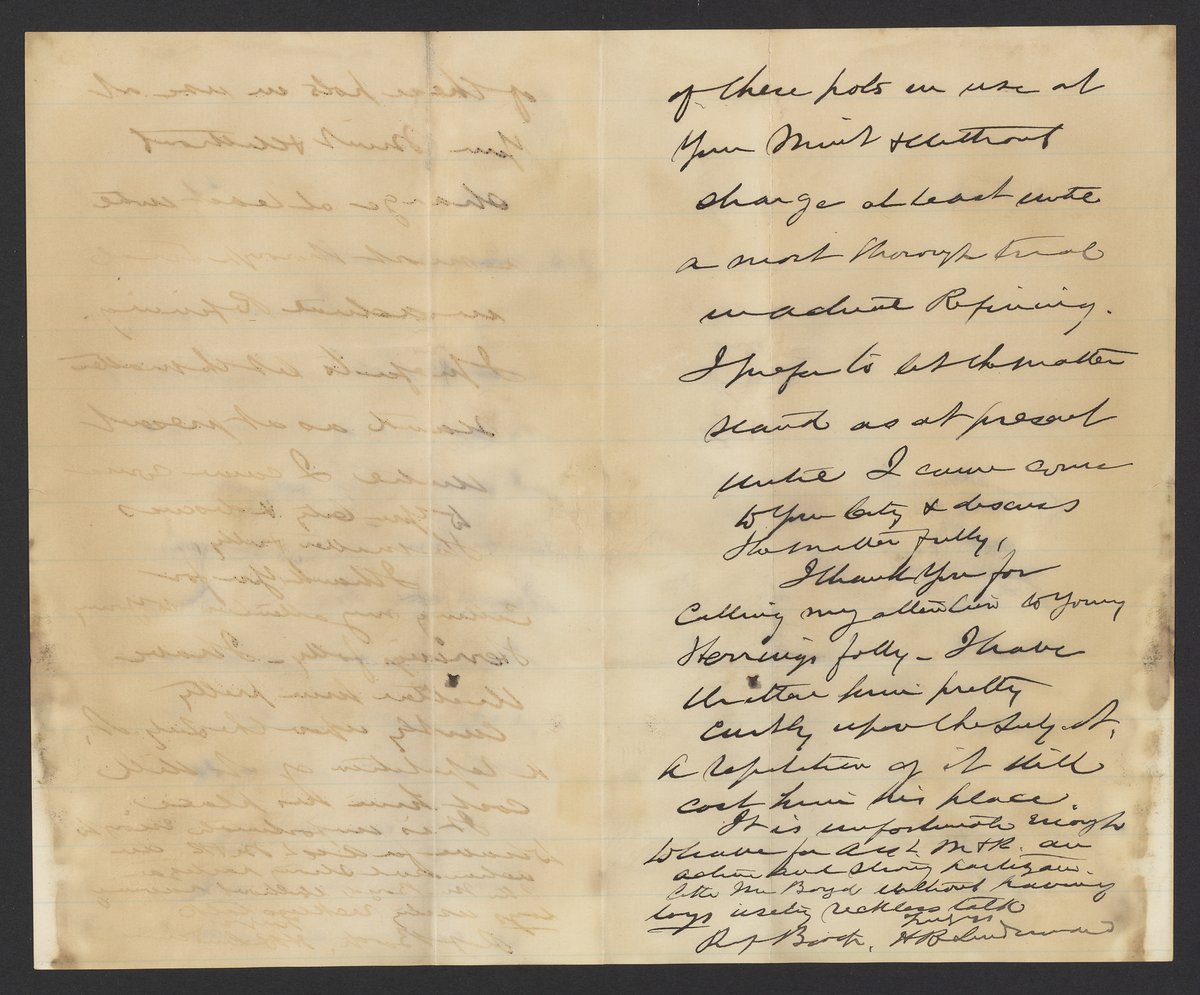 of these pots in use at
your Mint & without
charge at least until
a most thorough trial
in actual Refining.
I prefer to let the matter
stand as at present
until I can come
to your City & discuss
the matter fully.
I thank you for
calling my attention to young
Herrings folly - I have
written him pretty
curtly upon the subject,
A repetition of it will
cost him his place.
It is unfortunate enough
to have for Asst. M & R. an
active and strong partizan.
like Mr Boyd without having
boys using reckless talk
Truly yrs
H R Linderman